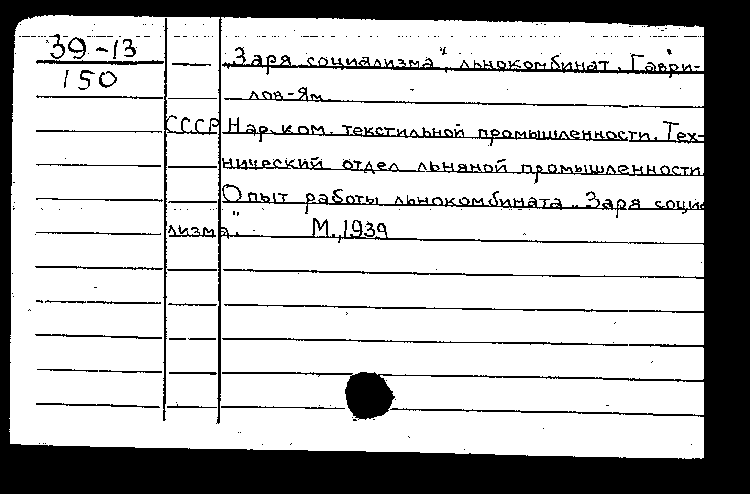 39-13
150
„Заря социализма", льнокомбинат. Гаври-
лов-Ям
СССР Нар. ком. текстильной промышленности. Тех-
нический отдел льняной промышленности.
Опыт работы льнокомбината „Заря социа
лизма". М., 1939